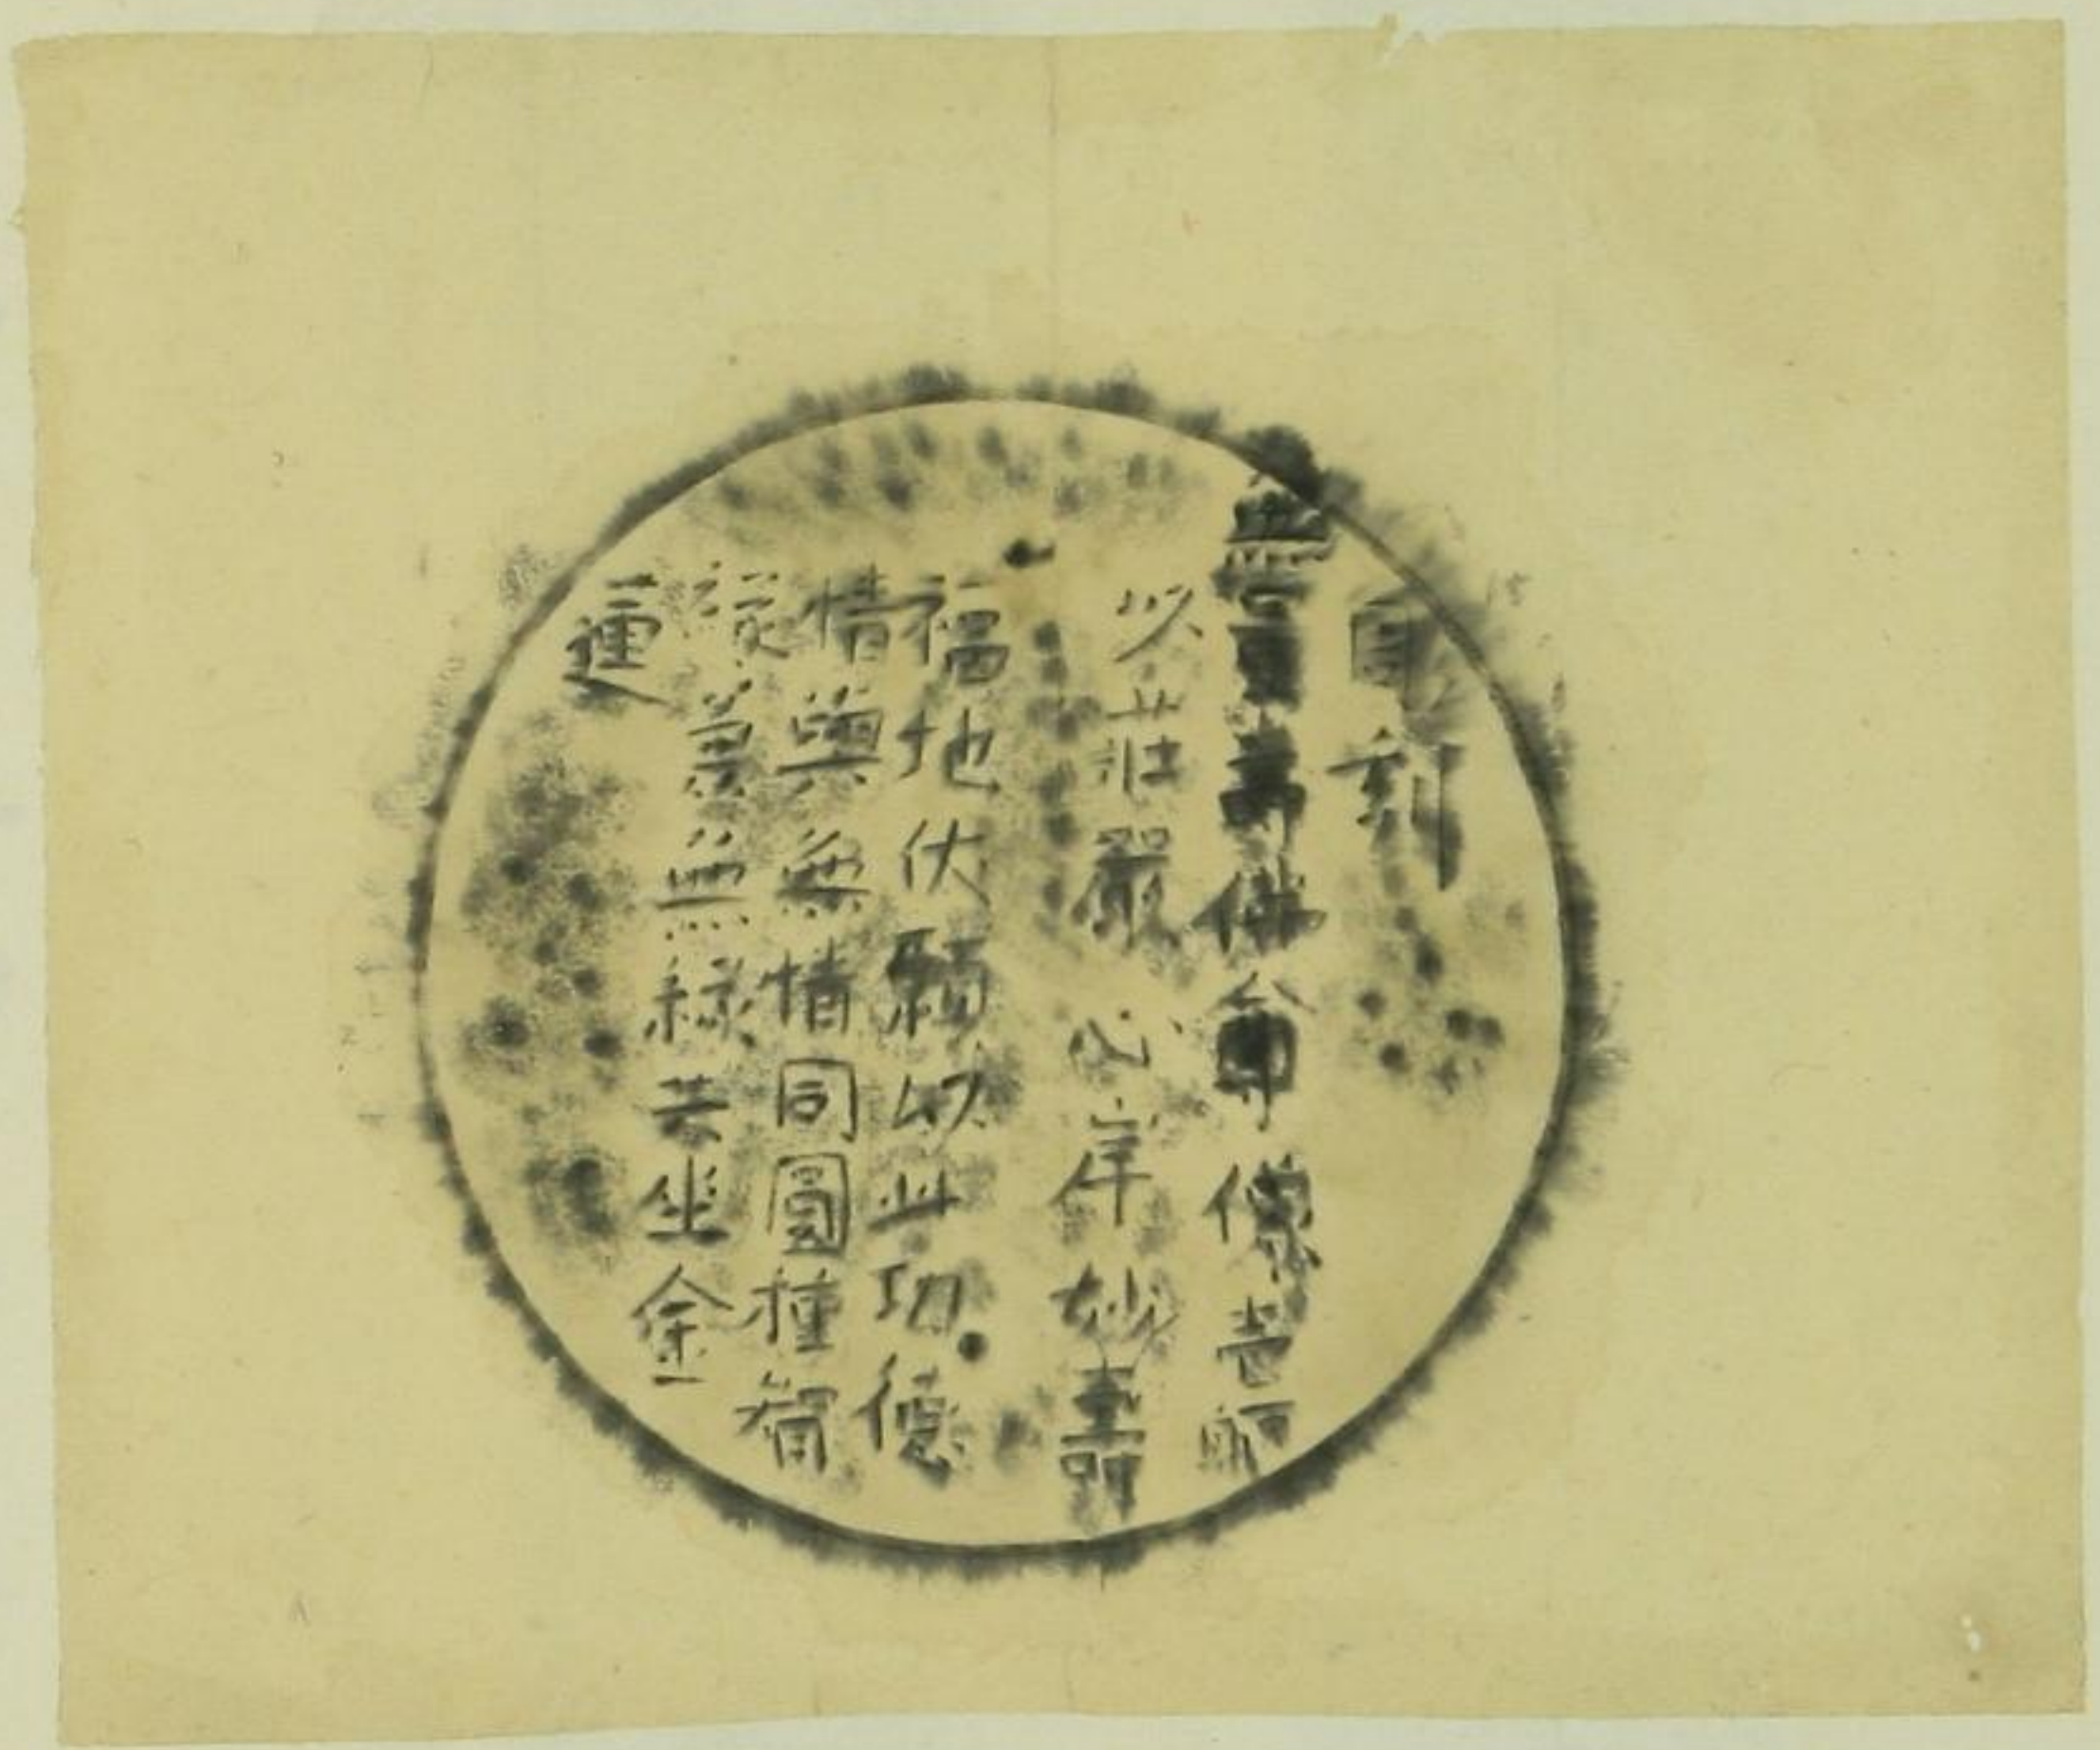 刻
無量壽佛尊像
以莊嚴心岸妙
福地伏願以此功德
情與無情同圓種智
無緣共坐金
蓮